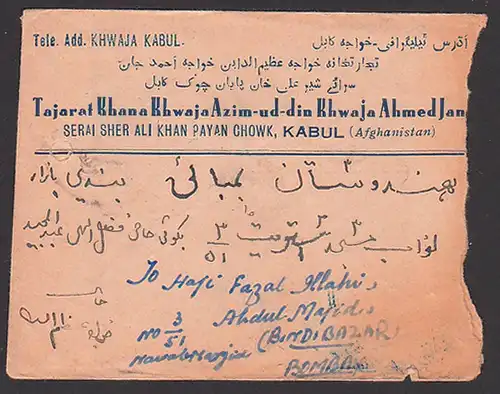 Tele. Add. KHWAJA KABUL.
آدرس تیلیگرافی - خواجه کابل
تجارتخانه خواجه عظیم الدین خواجه احمد جان
سرای شیر علی خان پایان چوک کابل
Tajarat Khana Khwaja Azim-ud-din Khwaja Ahmed Jan
SERAI SHER ALI KHAN PAYAN CHOWK, KABUL (Afghanistan)
هندوستان بمبائی بندی بازار
نواب مسجد استریت ۳/۵۱ حاجی فضل الهی عبدالمجید
To Haji Fazal Illahi,
Abdul Majid,
No 3/51 (BINDI BAZAR)
BOMBAY